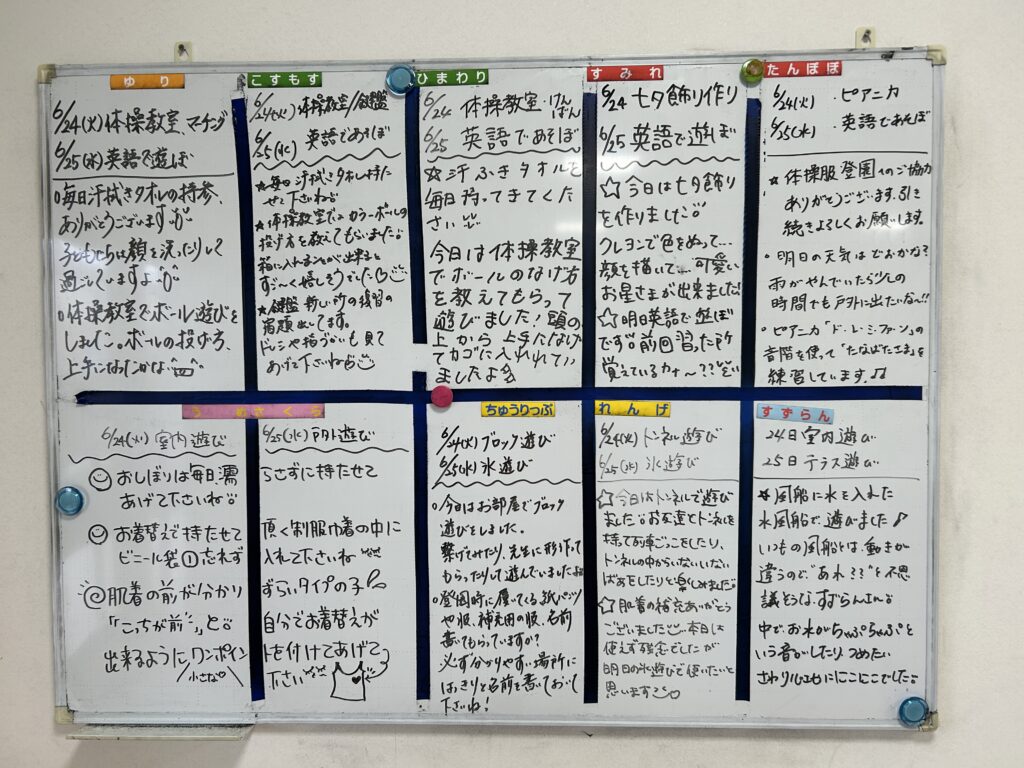 ゆり
6/24(火)体操教室、マーチング
6/25(水)英語で遊ぼ
○毎日汗拭きタオルの持参、
ありがとうございます
子どもたちは顔を洗ったりして
過ごしていますよ
○体操教室でボール遊びを
しました。ボールの投げ方、
上手になったかな
こすもす
6/24(火)体操教室/鍵盤
6/25(水)英語であそぼ
★毎日汗拭きタオル持た
せて下さいね
★体操教室ではカラーボールの
投げ方を教えてもらいました
箱に入れることが出来ると
すご〜く嬉しそうでした
★鍵盤 新しい所の復習の
宿題出てます。
ドレミや指づかいも見て
あげて下さいね
ひまわり
6/24 体操教室・けんばん
6/25 英語であそぼ
☆汗ふきタオルを
毎日持ってきてくだ
さい
今日は体操教室
でボールのなげ方
を教えてもらって
遊びました!頭の
上から上手になげ
てカゴに入れれてい
ましたよ
すみれ
6/24 七夕飾り作り
6/25 英語で遊ぼ
☆今日は七夕飾り
を作りました
クレヨンで色をぬって…
顔を描いて…可愛い
お星さまが出来ました!
☆明日英語で遊ぼ
です 前回習った所
覚えているカナ〜??
たんぽぽ
6/24(火)・ピアニカ
6/25(水)・英語であそぼ
★体操服登園へのご協力
ありがとうございます。引き
続きよろしくお願いします。
・明日の天気はどおかな?
雨がやんでいたら少しの
時間でも戸外に出たいな〜!!
・ピアニカ「ド・レ・ミ・ファ・ソ」の
音階を使って「たなばたさま」を
練習しています♪♪
うめさくら
6/24(火)室内遊び 6/25(水)戸外遊び
おしぼりは毎日濡らさずに持たせて
あげて下さいね
お着替えで持たせて頂く制服巾着の中に
ビニール袋①忘れず入れて下さいね
肌着の前が分かりずらいタイプの子
「こっちが前」と自分でお着替えが
出来るように小さなワンポイントを付けてあげて
下さい
ちゅうりっぷ
6/24(火)ブロック遊び
6/25(水)氷遊び
○今日はお部屋でブロック
遊びをしました。
繋げてみたり、先生に形作って
もらったりして遊んでいましたよ
○登園時に履いてる紙パンツ
や服、補充用の服、名前
書いてもらっていますか?
必ず分かりやすい場所に
はっきりと名前を書いておいて
下さいね!
れんげ
6/24(火)トンネル遊び
6/25(水)氷遊び
☆今日はトンネルで遊び
ました お友達とトンネルを
持って列車ごっこをしたり、
トンネルの中からいないいない
ばぁをしたりと楽しみました
☆肌着の補充ありがとう
ございました 本日は
使えず残念でしたが
明日の氷遊びで使いたいと
思います
すずらん
24日 室内遊び
25日 テラス遊び
★風船に水を入れた
水風船で遊びました♪
いつもの風船とは、動きが
違うので、"あれ??"と不思
議そうな、すずらんさん
中で、お水がちゃぷちゃぷと
いう音がしたり、つめたい
さわり心地ににこにこでした